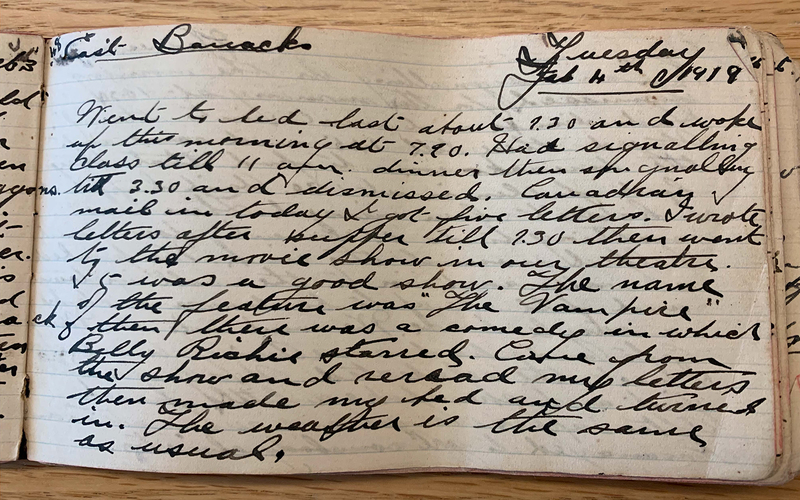 East Barracks
Tuesday
Feb 4th 1919
Went to bed last about 9.30 and woke
up this morning at 7.20. Had signalling
class till 11 a.m. dinner then signalling
till 3.30 and dismissed. Canadian
mail in today & got five letters. I wrote
letters after supper till 7.30 then went
to the movie show in our theatre.
It was a good show. The name
of the feature was "The Vampire"
& then there was a comedy in which
Billy Richie starred. Came from
the show and reread my letters
then made my bed and turned
in. The weather is the same
as usual.